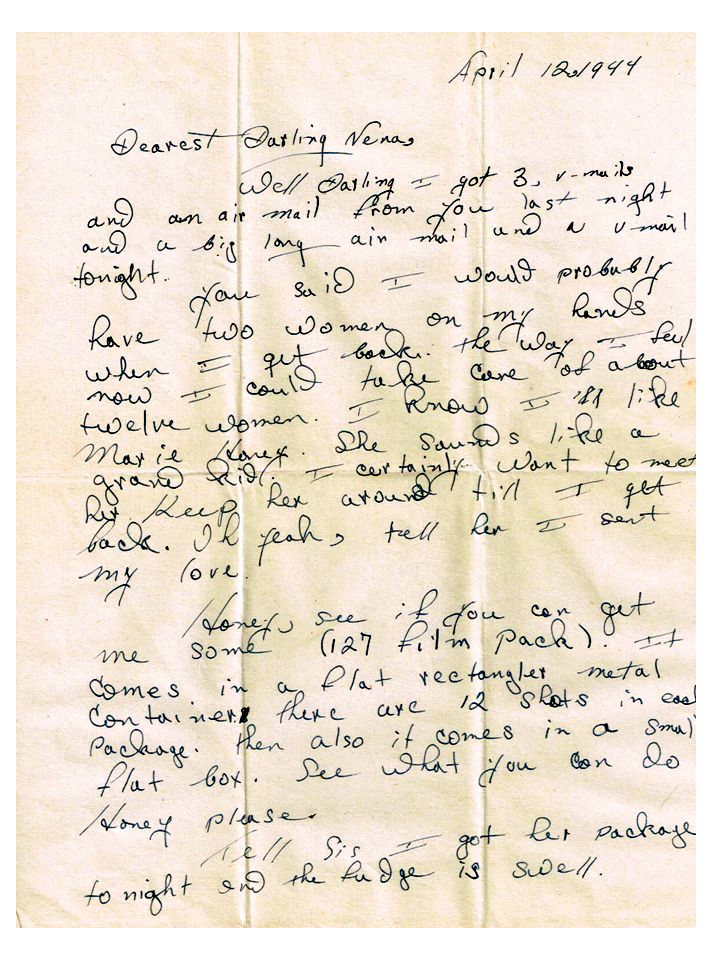 April 12, 1944
Dearest Darling Nena,
Well Darling I got 3, v-mails
and an air mail from you last night
and a big long air mail and a v mail
tonight.
You said I would probably
have two women on my hands
when I get back. the way I feel
now I could take care of about
twelve women. I know I'll like
Marie Honey. She sounds like a
grand kid. I certainly want to meet
her Keep her around till I get
back. Oh yeah, tell her I sent
my love.
Honey, see if you can get
me some (127 film pack). It
comes in a flat rectangler metal
container, there are 12 shots in each
package. then also it comes in a small
flat box. See what you can do
Honey please.
Tell Sis I got her package
tonight and the fudge is swell.